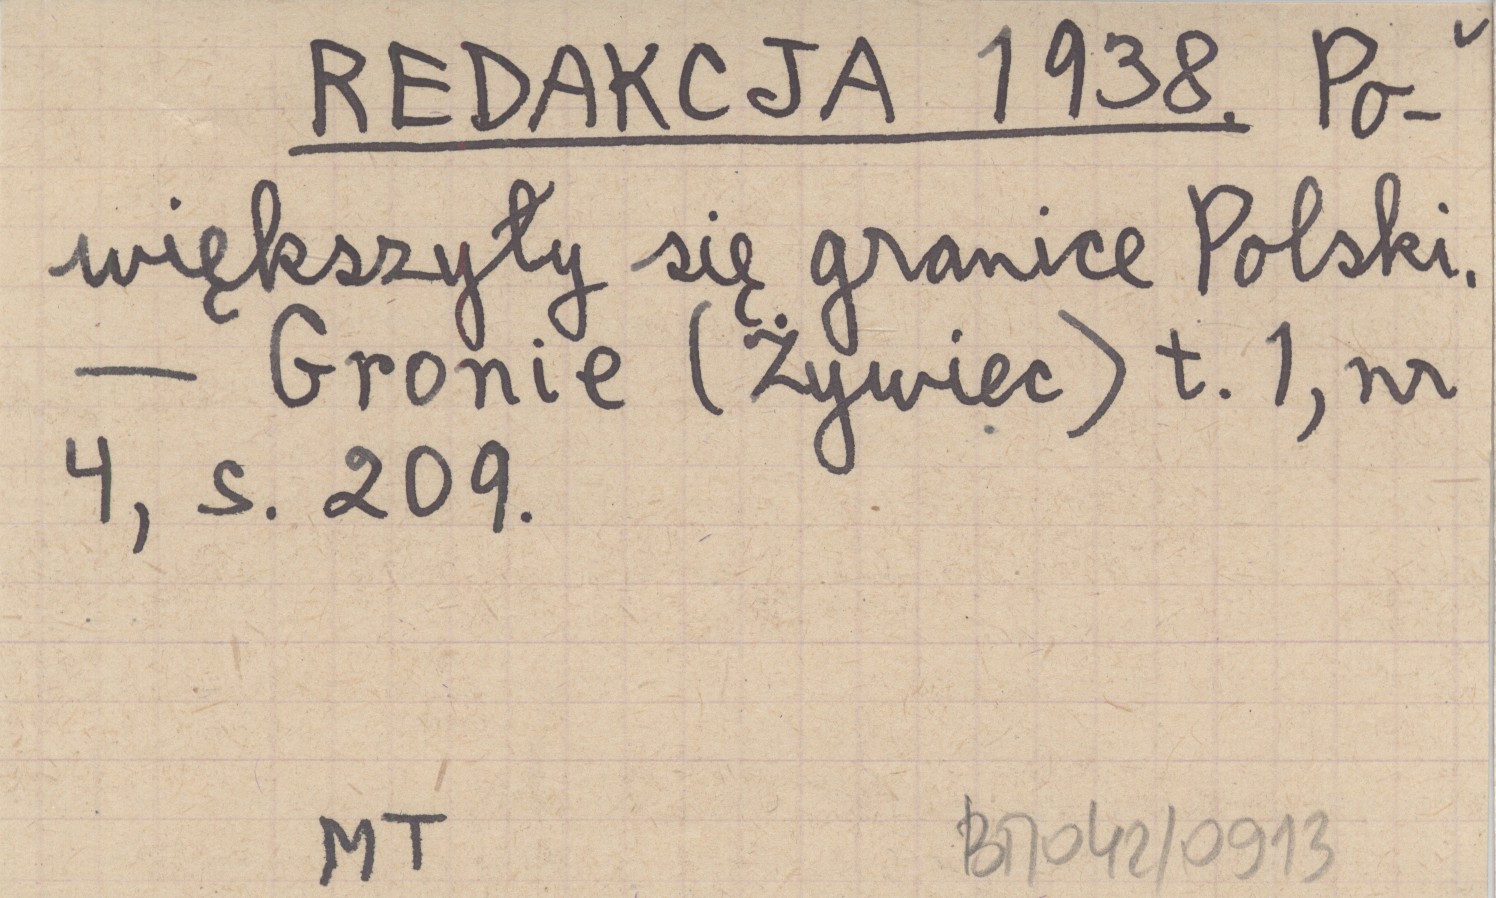 REDAKCJA 1938. Po-
większyły się granice Polski.
— Gronie (Żywiec) t. 1, nr
4, s. 209.
MT
ВП042/0913